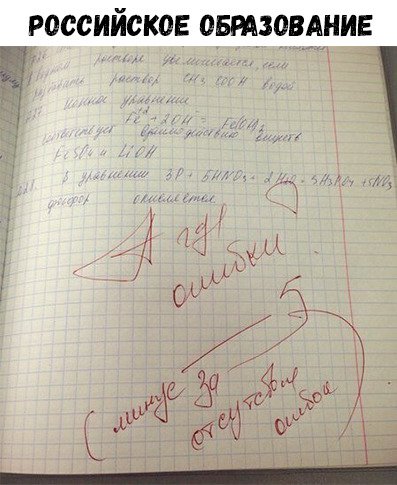 РОССИЙСКОЕ ОБРАЗОВАНИЕ
растворе увеличивается, если
раствор CH3COOH водой
Ионное уравнение
Fe2+ + 2OH- = Fe(OH)2
соответствует взаимодействию веществ
FeSO4 и LiOH
В уравнении 3P + 5HNO3 + 2H2O = 3H3PO4 + 5NO
фосфор окисляется
А где
ошибки
5-
(минус за
отсутствие
ошибок